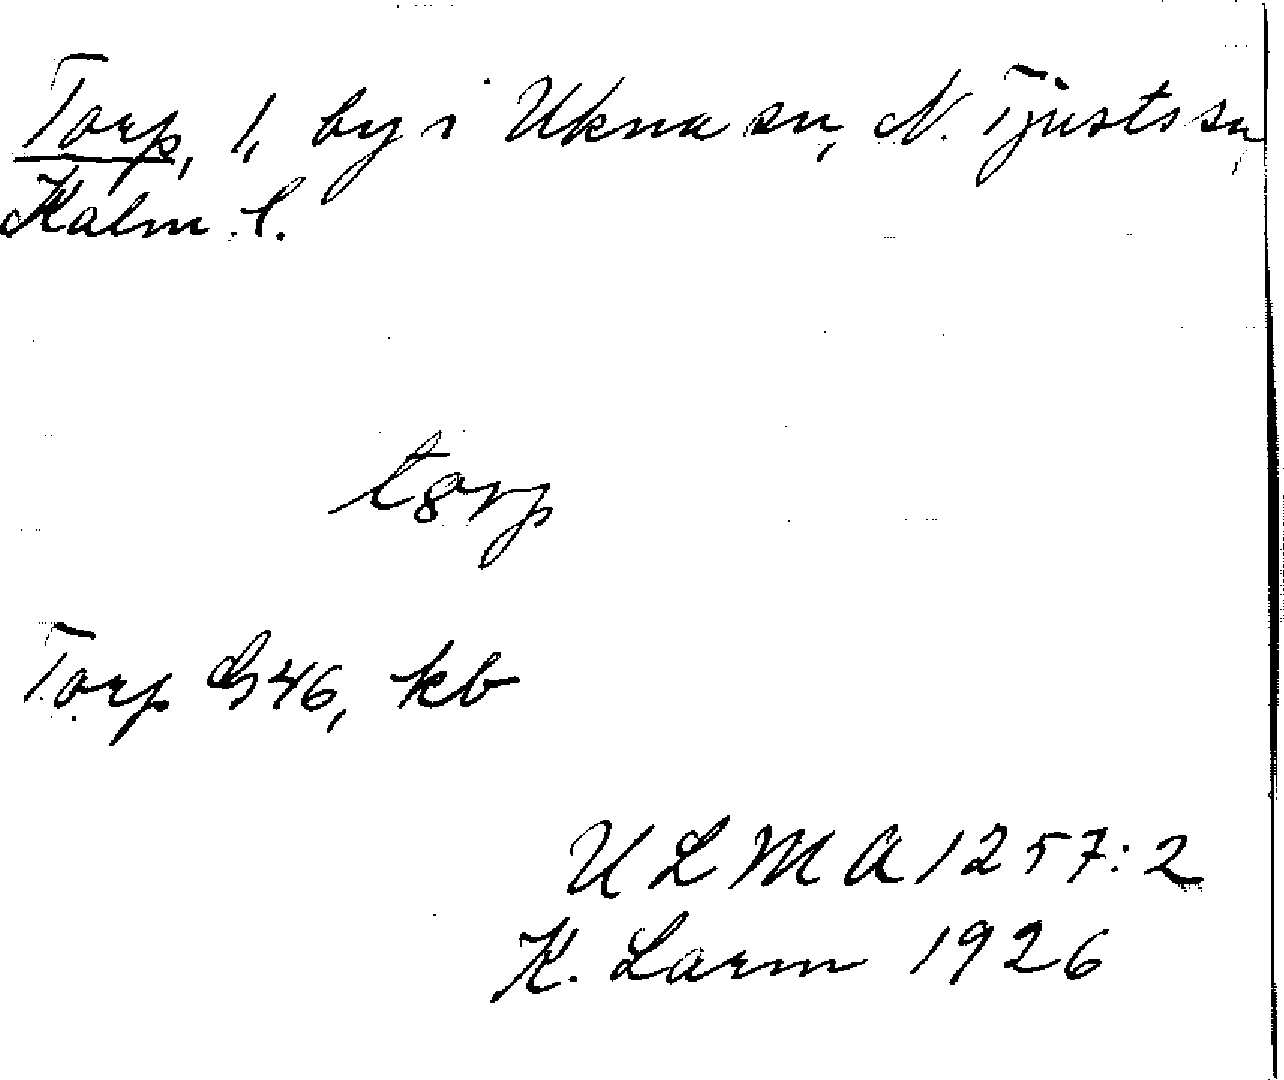 Torp, 1, by i Ukna sn, N. Tjusts sn,
Kalm. l.
Torp G46, kb
ULMA 1257:2
K. Larm 1926